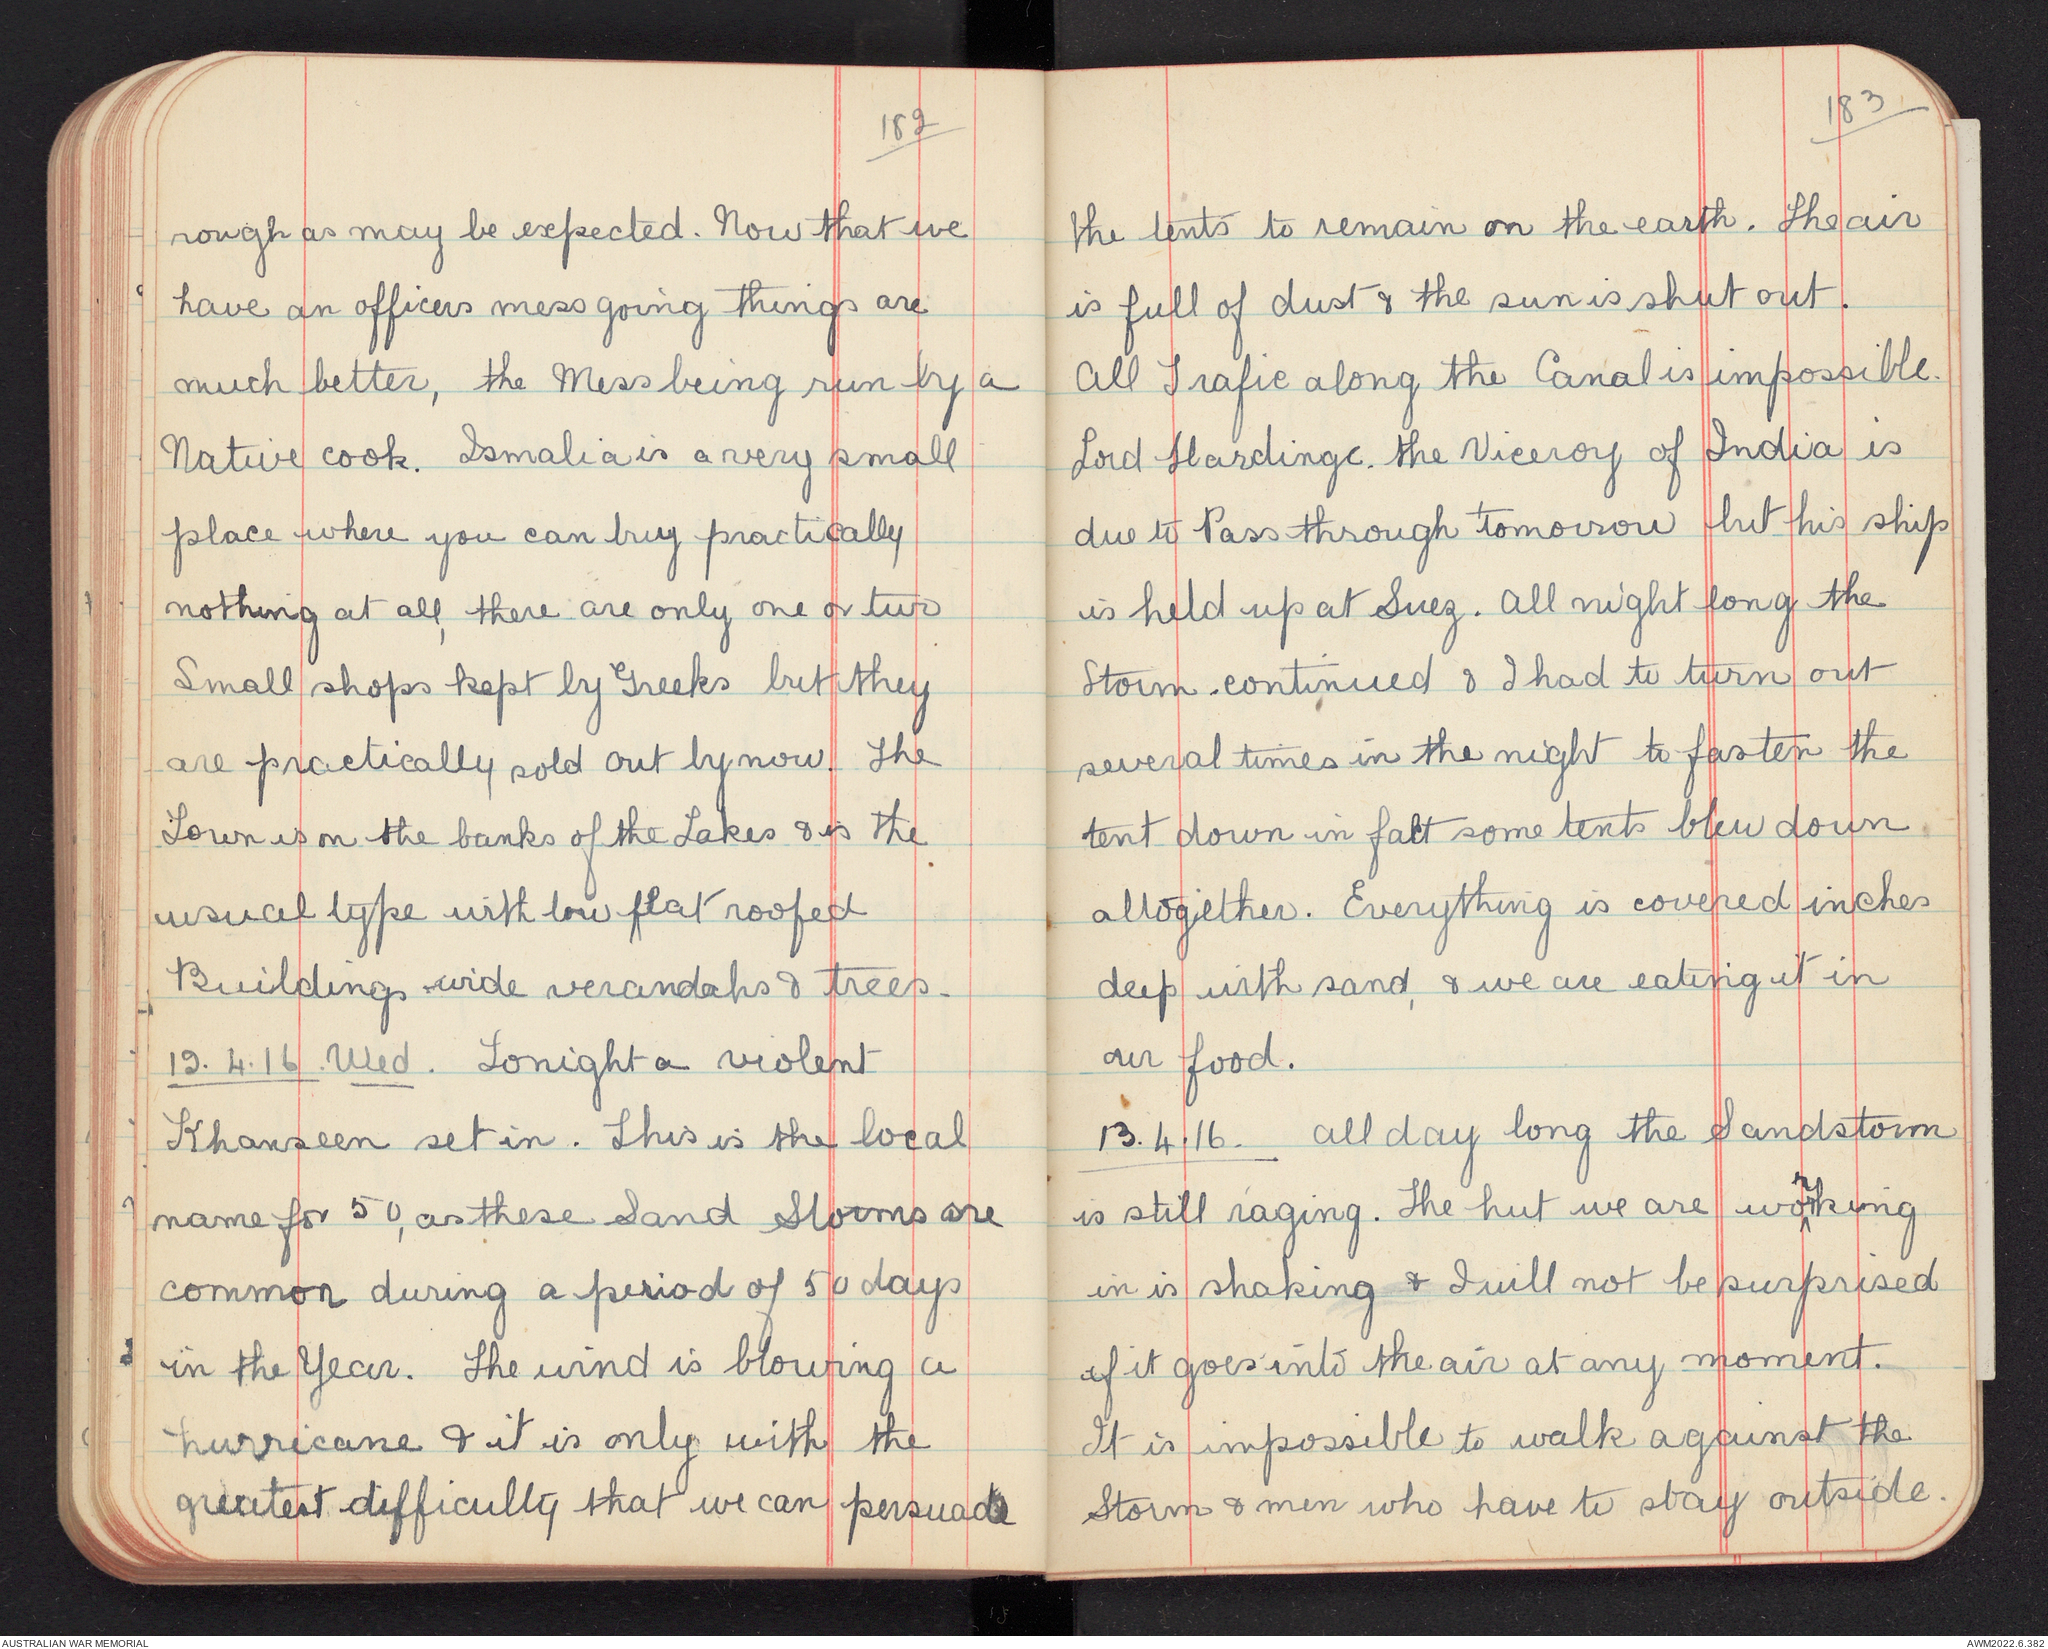 182
rough as may be expected. Now that we
have an officers mess going things are
much better, the Mess being run by a
Native cook. Ismalia is a very small
place where you can buy practically
nothing at all, there are only one or two
Small shops kept by Greeks but they
are practically sold out by now. The
Town is on the banks of the Lakes & is the
usual type with low flat roofed
Buildings wide verandahs & trees.
12.4.16. Wed. Tonight a violent
Khamseen set in. This is the local
name for 50, as these Sand Storms are
common during a period of 50 days
in the Year. The wind is blowing a
hurricane & it is only with the
greatest difficulty that we can persuade
183
the tents to remain on the earth. The air
is full of dust & the sun is shut out.
All Trafic along the Canal is impossible.
Lord Hardinge. the Viceroy of India is
due to Pass through tomorrow but his ship
is held up at Suez. All night long the
Storm continued & I had to turn out
several times in the night to fasten the
tent down in fact some tents blew down
altogether. Everything is covered inches
deep with sand, & we are eating it in
our food.
13.4.16. All day long the Sandstorm
is still raging. The hut we are working
in is shaking & I will not be surprised
if it goes into the air at any moment.
It is impossible to walk against the
Storm & men who have to stay outside.
AUSTRALIAN WAR MEMORIAL
AWM2022.6.382